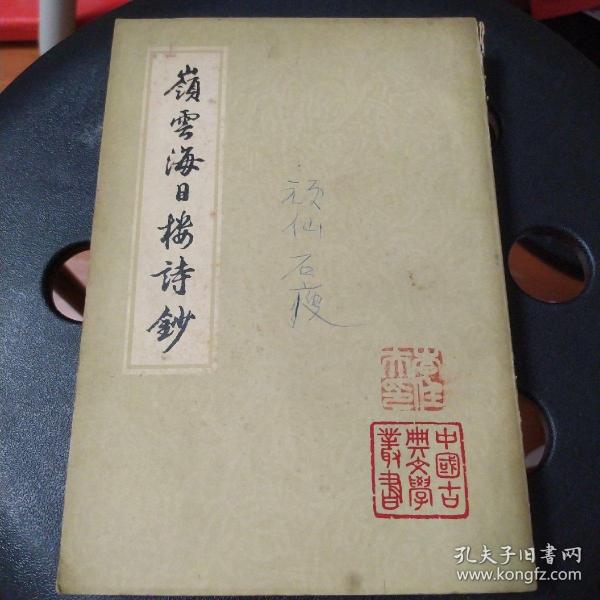 嶺雲海日楼詩鈔
石瘦
中國古
典文學
叢書
孔夫子旧书网
www.kongfz.com